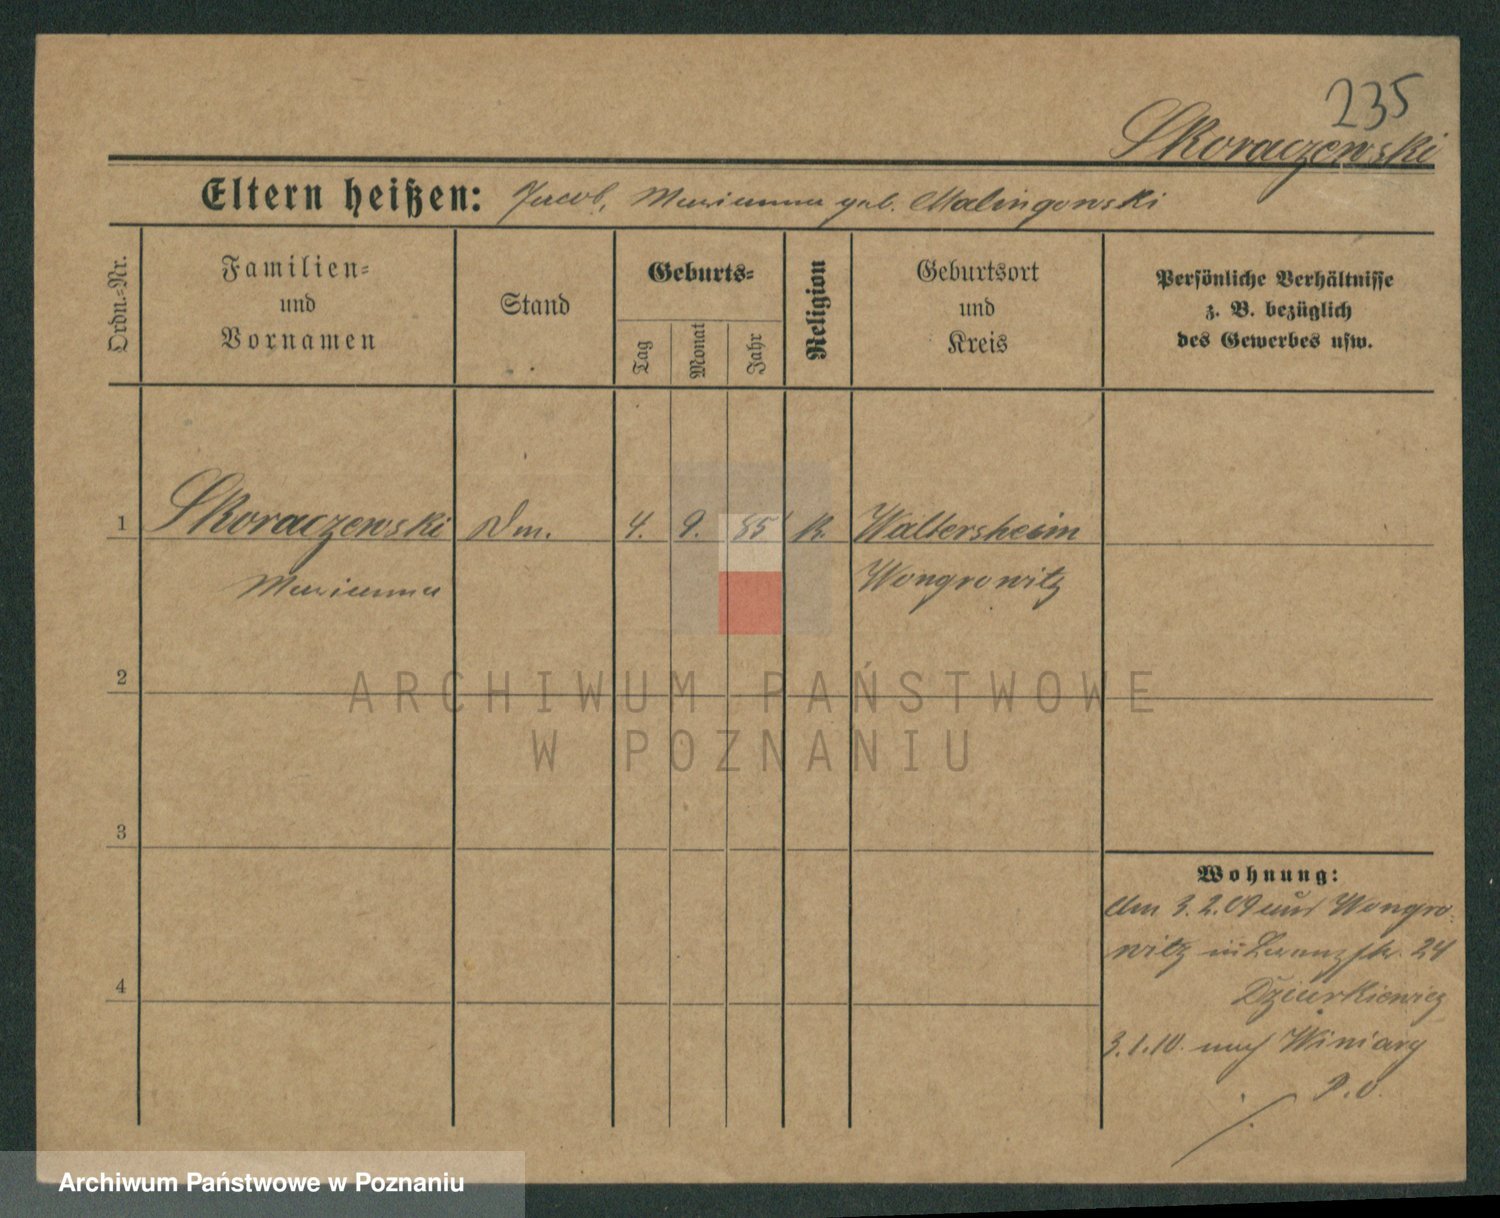 235
Skoraczewski
Eltern heißen: Jacob, Marianna geb. Malingowski
Ordn.-Nr.
Familien-
und
Vornamen
Stand
Geburts-
Tag
Monat
Jahr
Religion
Geburtsort
und
Kreis
Persönliche Verhältnisse
z. B. bezüglich
des Gewerbes usw.
1 Skoraczewski Dm. 4. 9. 85 k. Waltersheim
Marianna Wongrowitz
2
3
4
Wohnung:
Am 3.2.09 aus Wongro-
witz in str. 24
Dziurkiewicz
3.1.10. nach Winiary
P.O.
ARCHIWUM PAŃSTWOWE
W POZNANIU
Archiwum Państwowe w Poznaniu